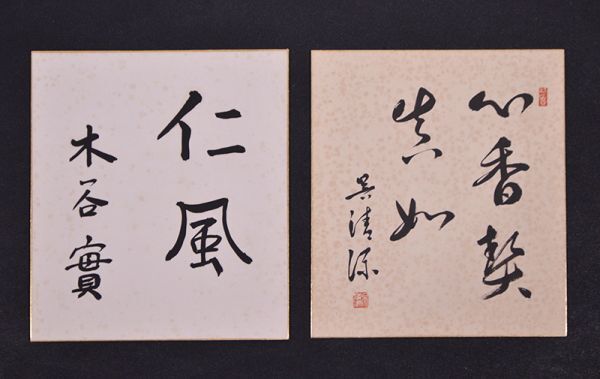 仁風
木谷實
心香契
真如
呉清源